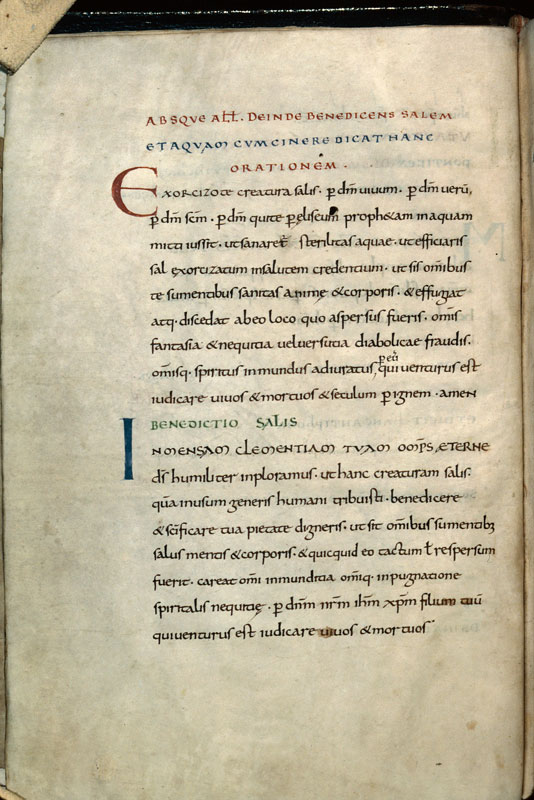 ABSQVE AŁŁ. DEINDE BENEDICENS SALEM
ET AQVAM CVM CINERE DICAT HANC
ORATIONEM.
Exorcizo te creatura salis. p̄ dm̄ uiuum. p̄ dm̄ uerū,
p̄ dm̄ scm̄. p̄ dm̄ qui te p̄ eliseum prophetam in aquam
mitti iussit. ut sanaret̄ sterilitas aquae. ut efficiaris
sal exorcizatum in salutem credentium. ut sis om̄ibus
te sumentibus sanitas animę & corporis. & effugiat
atq· discedat ab eo loco quo aspersus fueris. om̄is
fantasia & nequitia uel uersutia diabolicae fraudis.
om̄isq· spiritus inmundus adiuratus, p eū qui uenturus est
iudicare uiuos & mortuos & seculum p̄ ignem. amen
BENEDICTIO SALIS
INMENSAM CLEMENTIAM TVAM OMP̄S, ETERNE
ds̄ humiliter inploramus. ut hanc creaturam salis.
quā in usum generis humani tribuisti. benedicere
& sc̄ificare tua pietate digneris. ut sit om̄ibus sumentib;
salus mentis & corporis. & quicquid eo tactum ł respersum
fuerit. careat om̄i inmunditia om̄iq· inpugnatione
spiritalis nequitię. p̄ dn̄m nr̄m ihm̄ xp̄m filium tuū
qui uenturus est iudicare uiuos & mortuos